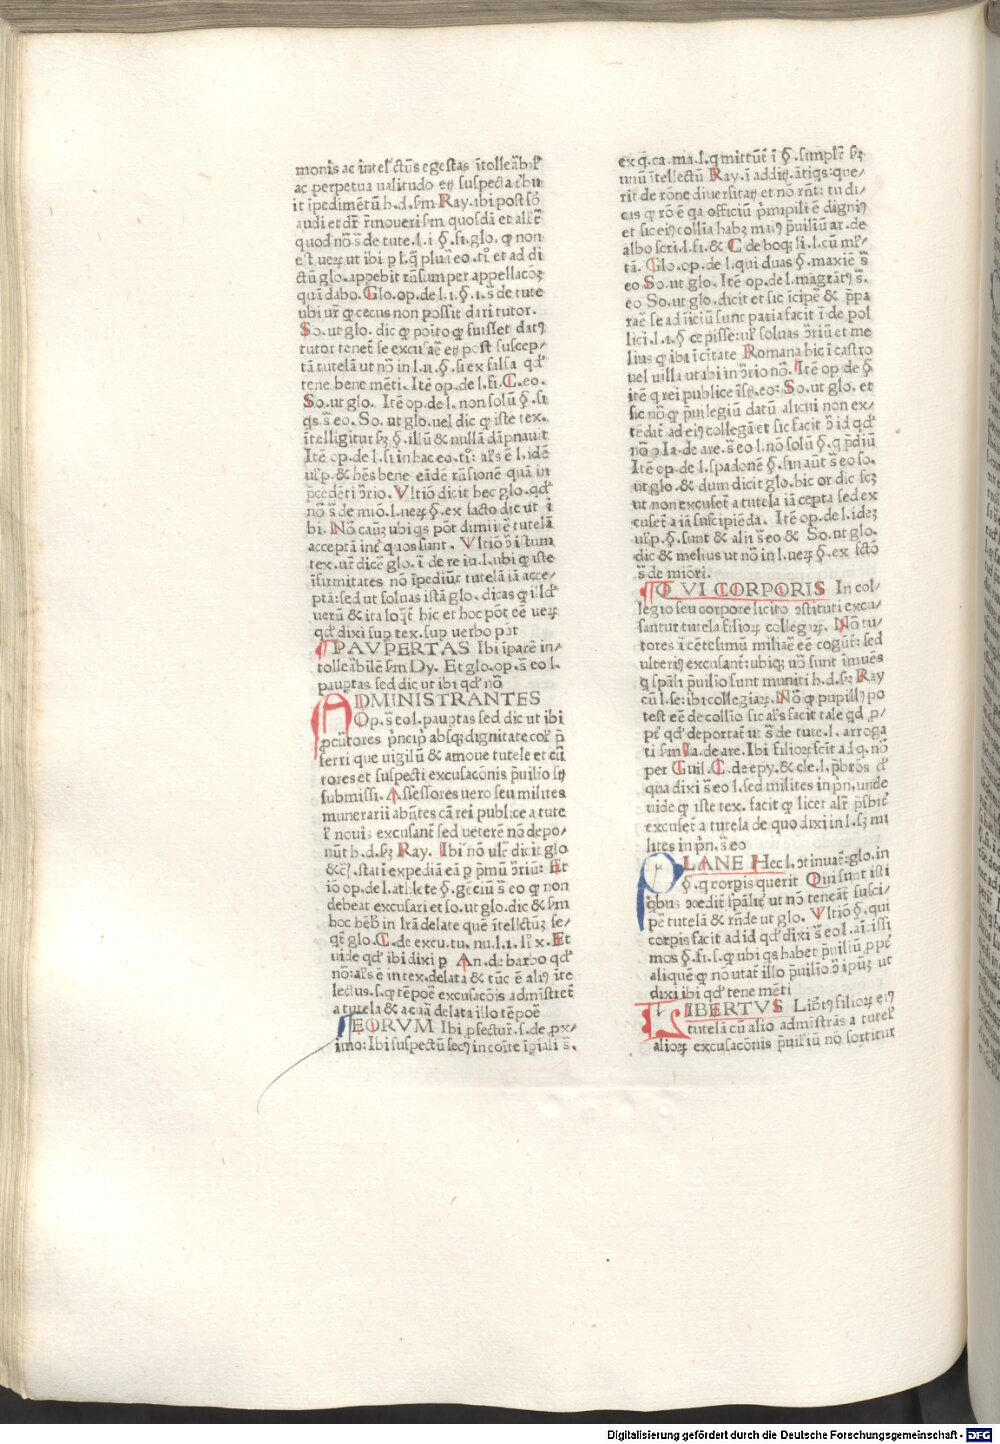 monis ac intel' ctūs egestas ītolleãbil'
ac perpetua ualitudo
it īpedimētū h.d.s̄m Ray. ibi post sō
audi et dr̄ r̄moueri s̄m quosdã et
quod nō s̄ de tute.l.i §.fi.glo. qƺ non
ctū glo.appebit rāsum per appellacōƺ
quã dabo. Glo.op.de l.1.§.1.s̄ de tute
ubi ur̄ qƺ cecus non possit dari tutor.
So.ut glo. dic qƺ poito qƺ fuisset datꝰ
tutor tenet̄ se excusãe post suscep/
tã tutelã ut nō in l.ii.§.si ex falsa qd'
tene bene mēti. Itē op.de l.fi.C.eo.
So.ut glo. Itē op.de l. non solū §.si
qs s̄ eo. So.ut glo.uel dic qƺ iste tex.
ītelligitur sƺ §.illū & nullã dāpnauit
Itē op.de l.si in hac eo.ti: al's ē l.idē
ul'p.& hēs bene eādē rāsionē quã in
p̄cedēti ɔ̄rio. Vltiō dicit hec glo.qd'
nō s̄ de miō.l.ueƺ §.ex facto dic ut i
bi. Nō caūƺ ubi qs pōt dimittē tutelã
acceptã int̄ quos sunt. Vltiō ɔ̄ istum
tex.ur̄ dicē glo.ī de re iu.l.ubi qƺ iste
īfirmitates nō īpediūt tutelã iã acce/
ptã: sed ut soluas istã glo.dicas qƺ illd'
uerū & ita loqt̄ hic et hoc pōt eē ueƺ
qd' dixi sup tex.sup uerbo pōt
¶PAVPERTAS Ibi īparē in/
tolleãbilē s̄m Dy. Et glo.op.s̄ eo l.
pauptas sed dic ut ibi qd' nō
ADMINISTRANTES
Op.s̄ eo l.pauptas sed dic ut ibi
pcūtores p̄ncip absqƺ dignitate col' p̄
ferri que uigilū & amoue tutele et cū
tores et suspecti excusacōnis p̄uilio
submissi. Assessores uero seu milites
munerarii abn̄tes cã rei publice a tute
l' nouis excusant̄ sed ueterē nō depo/
nūt h.d.sƺ Ray. Ibi nō ul'c dicit glo
&c̄.stati expediã eã p p̄mū ɔ̄riū: Et
iō op.de l.athlete §.gēciū s̄ eo qƺ non
debeat excusari et so.ut glo.dic & s̄m
hoc hēb' in lr̄ã delate quē ītellectūƺ se/
qt̄ glo. C.de excu.tu. nu.l.1. Et
uide qd' ibi dixi p An.de barbo qd'
nō: al's ē in tex.delata & tūc ē aliꝰ īte
lectus.s.qƺ tēpoē excusacōis admīstret
a tutela & acuã delata illo tēpoē
¶EORVM Ibi pfectuū.s.de px/
imo: Ibi suspectū secꝰ in coīte īpiali s̄.
ex q̄.ca.ma.l.q mittūt ī §.simpl'r sƺ
unū ītellectū Ray.ī addit̄.ātiqs: que/
rit de rōne diuersitat̄ et nō rn̄t: tu di/
cas qƺ rō ē qa officiū p̄mipili ē dignꝰ
et sic eiꝰ collīa habƺ maiꝰ p̄uiliū ar.de
albo scri.l.fi.& C de boqƺ li.l.cū ml'/
tã. Glo.op.de l.qui duas §.maxiē s̄
eo So.ut glo. Itē op.de l.magrātꝰ s̄.
eo So.ut glo.dicit et sic īcipē & p̄pa
rãe se ad īiciū sunt paria facit ī de pol
lici.l.1.§ cepisse: ul' soluas ɔ̄riū et me
lius qƺ ibi ī cītate Romana hic ī castro
uel uilla ut abi in ɔ̄rio nō. Itē op de §
itē q rei publice īst̄.eo: So.ut glo. et
sic nō qƺ puilegiū datū alicui non ex/
tēdit̄ ad eiꝰ collegã et sic facit ɔ̄ id qd'
nō p Ia.de are.s̄ eo l.nō solū §.q p̄diū
Itē op.de l.spadonē §.sin aūt s̄ eo so.
ut glo.& dum dicit glo.hic or dic scƺ
ut non excuset̄ a tutela iã cepta sed ex
cuset̄ a iã suscipiēda. Itē op.de l.ideƺ
ul'p.§.sunt & alii s̄ eo & So.ut glo.
dic & melius ut nō in l.ueƺ §.ex fctō
s̄ de miōri.
¶QVI CORPORIS In col/
legio seu corpore licito ɔstituti excu/
santur tutela filioƺ collegiaƺ. Nō tu/
tores ī cētesimū miliaē eē cogūt: sed
ulteriꝰ excusant: ubiqƺ uō sunt īmuēs
q spāli p̄uilīo sunt muniti h.d.sƺ Ray
cū l.se: ibi collegiaƺ. Nō qƺ pupillꝰ po
test eē de collīo sic al's facit tale qd p/
pt̄ qd' deportat̄ ut s̄ de tute.l.arroga
ti s̄m Ia.de are. Ibi filioƺ scīt ad q.nō
per Guil.C.de epy.& cle.l.p̄bros
qua dixi s̄ eo l.sed milites in p̄n.unde
uide qƺ iste tex. facit qƺ licet alr̄ p̄sbit̄
excuset̄ a tutela de quo dixi in l.sƺ mi
lites in p̄n.s̄ eo
PLANE Hec l.ɔtinuat̄: glo.in
§.q corpis querit Qui sunt isti
qbus ɔcedit̄ spālit̄ ut nō teneāt̄ susci/
pē tutelã & rn̄de ut glo. Vltiō §.qui
corpis facit ad id qd' dixi s̄ eo l.aīīssi
mos §.fi.s.qƺ ubi qs habet p̄uiliū ppt̄
aliquē qƺ nō utat̄ illo p̄uilio ɔ̄ ipūƺ ut
dixi ibi qd' tene mēti
LIBERTVS Lib̄tꝰ filioƺ eiꝰ
tutelã cū alio admīstrās a tutel'
alioƺ excusacōnis p̄uiliū nō sortitur
Digitalisierung gefördert durch die Deutsche Forschungsgemeinschaft - DFG